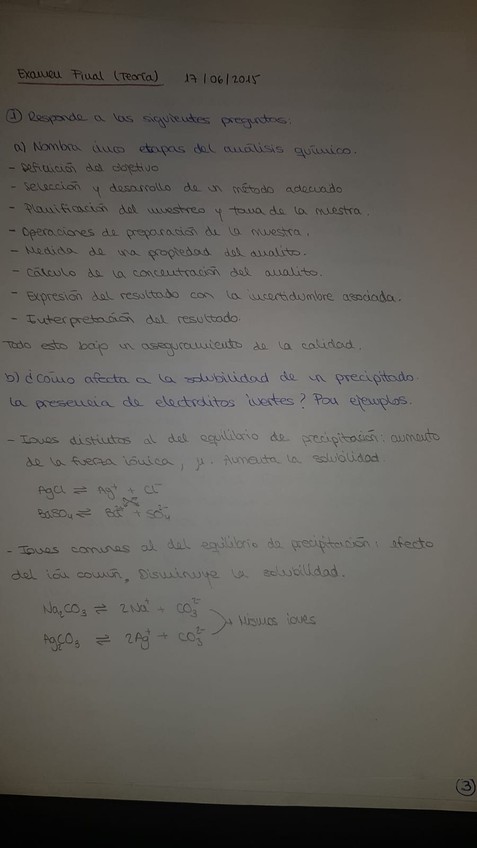 Examen Final (Teoría) 17/06/2015
① Responde a las siguientes preguntas:
a) Nombra cinco etapas del análisis químico.
- Definición del objetivo
- Selección y desarrollo de un método adecuado
- Planificación del muestreo y toma de la muestra.
- Operaciones de preparación de la muestra.
- Medida de una propiedad del analito.
- Cálculo de la concentración del analito.
- Expresión del resultado con la incertidumbre asociada.
- Interpretación del resultado.
Todo esto bajo un aseguramiento de la calidad.
b) ¿Cómo afecta a la solubilidad de un precipitado
la presencia de electrolitos inertes? Pon ejemplos.
- Iones distintos al del equilibrio de precipitación: aumento
de la fuerza iónica, μ. Aumenta la solubilidad
AgCl ⇌ Ag⁺ + Cl⁻
BaSO₄ ⇌ Ba²⁺ + SO₄²⁻
- Iones comunes al del equilibrio de precipitación: efecto
del ión común, Disminuye la solubilidad.
Na₂CO₃ ⇌ 2Na⁺ + CO₃²⁻
Ag₂CO₃ ⇌ 2Ag⁺ + CO₃²⁻ Mismos iones
③